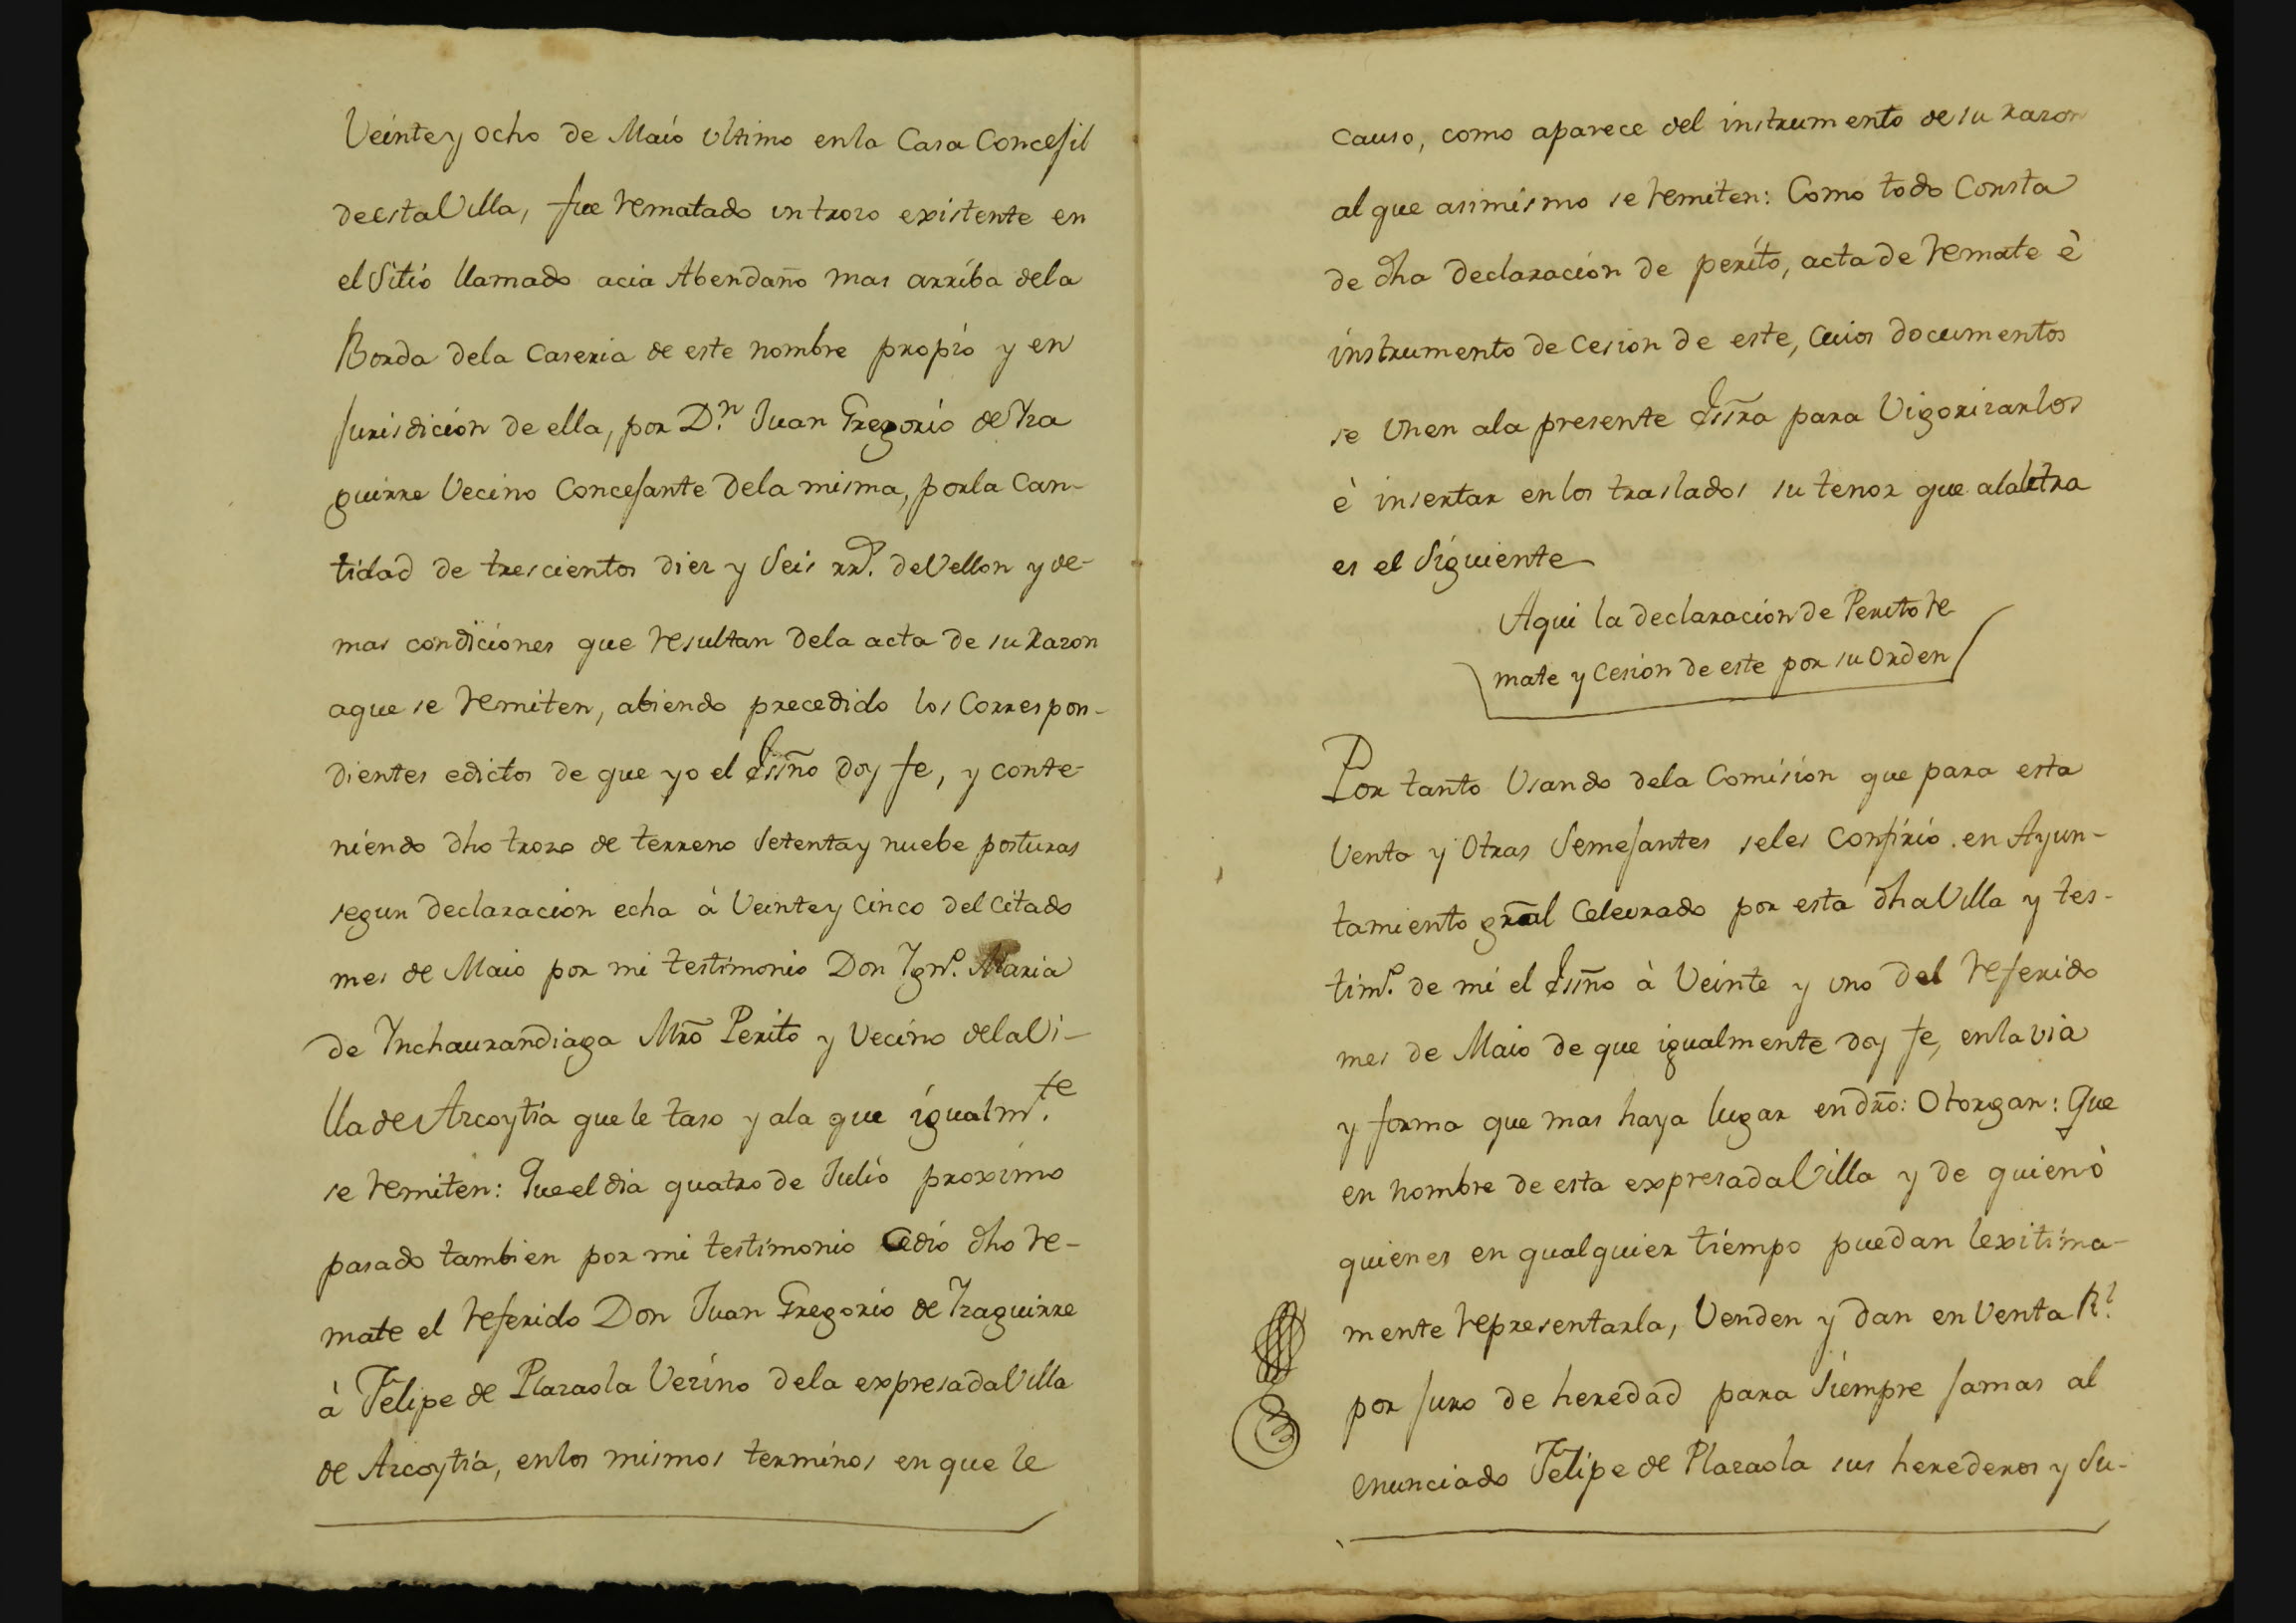 Veinte y ocho de Maio ultimo en la Casa Concejil
de esta Villa, fue rematado un trozo existente en
el Sitio llamado acia Abendaño mas arriba de la
Borda de la Caseria de este nombre propio y en
Jurisdicion de ella, por D.n Juan Gregorio de Yza
guirre Vecino Concejante de la misma, por la Can-
tidad de trescientos diez y Seis rr.s de Vellon y de-
mas condiciones que resultan de la acta de su Razon
a que se remiten, abiendo precedido los Correspon-
dientes edictos de que yo el Essño doy fe, y conte-
niendo dho trozo de terreno Setenta y nuebe posturas
segun declaracion echa à Veinte y Cinco del Citado
mes de Maio por mi testimonio Don Ygn.o Maria
de Ynchaurandiaga Mrõ Perito y Vecino de la Vi-
lla de Azcoytia que le taso y a la que igualm.te
se remiten: Que el dia quatro de Julio proximo
pasado tambien por mi testimonio Cedio dho re-
mate el referido Don Juan Gregorio de Yzaguirre
à Felipe de Plazaola Vezino de la expresada Villa
de Azcoytia, en los mismos terminos en que le
causo, como aparece del instrumento de su razon
al que asimismo se remiten: Como todo Consta
de dha Declaracion de perito, acta de remate è
instrumento de Cesion de este, Cuios documentos
se Unen a la presente Essrã para Vigorizarlos
è insertar en los traslados su tenor que a la letra
es el Siguiente
Aqui la declaracion de Perito re
mate y Cesion de este por su Orden
Por tanto Usando de la Comision que para esta
Venta y Otras Semejantes se les Confirio en Ayun-
tamiento grãl Celevrado por esta dha Villa y tes-
tim.o de mi el Essño à Veinte y uno del referido
mes de Maio de que igualmente doy fe, en la via
y forma que mas haya lugar en drõ: Otorgan: Que
en nombre de esta expresada Villa y de quien ò
quienes en qualquier tiempo puedan lexitima-
mente representarla, Venden y dan en Venta R.l
por Juro de heredad para Siempre Jamas al
enunciado Felipe de Plazaola sus herederos y Su-